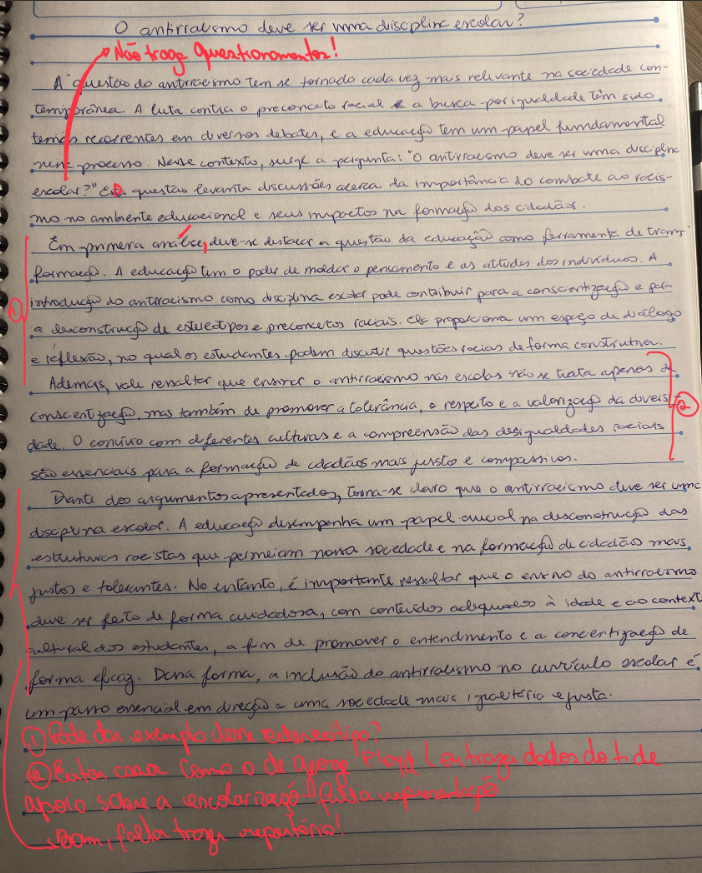 O antirracismo deve ser uma disciplina escolar?
Não traga questionamentos!
A questão do antirracismo tem se tornado cada vez mais relevante na sociedade con-
temporânea. A luta contra o preconceito racial e a busca por igualdade têm sido
temas recorrentes em diversos debates, e a educação tem um papel fundamental
nesse processo. Nesse contexto, surge a pergunta: "O antirracismo deve ser uma disciplina
escolar?" Essa questão levanta discussões acerca da importância do combate ao racis-
mo no ambiente educacional e seus impactos na formação dos cidadãos.
Em primeira análise, deve-se destacar a questão da educação como ferramenta de trans-
formação. A educação tem o poder de moldar o pensamento e as atitudes dos indivíduos. A
1
introdução do antirracismo como disciplina escolar pode contribuir para a conscientização e para
a desconstrução de estereótipos e preconceitos raciais. Ela proporciona um espaço de diálogo
e reflexão, no qual os estudantes podem discutir questões raciais de forma construtiva.
Ademais, vale ressaltar que ensinar o antirracismo nas escolas não se trata apenas de
conscientização, mas também de promover a tolerância, o respeito e a valorização da diversi-
2
dade. O convívio com diferentes culturas e a compreensão das desigualdades raciais
são essenciais para a formação de cidadãos mais justos e compassivos.
Diante dos argumentos apresentados, torna-se claro que o antirracismo deve ser uma
disciplina escolar. A educação desempenha um papel crucial na desconstrução das
estruturas racistas que permeiam nossa sociedade e na formação de cidadãos mais
justos e tolerantes. No entanto, é importante ressaltar que o ensino do antirracismo
deve ser feito de forma cuidadosa, com conteúdos adequados à idade e ao contexto
cultural dos estudantes, a fim de promover o entendimento e a concientização de
forma eficaz. Dessa forma, a inclusão do antirracismo no currículo escolar é
um passo essencial em direção a uma sociedade mais igualitária e justa.
1 Pode dar exemplo desse estereótipo?
2 casos como o de Georg Floyd ou traga dados do t de
apoio sobre a escolarização falta representação
Bom, falta trazer repertório!